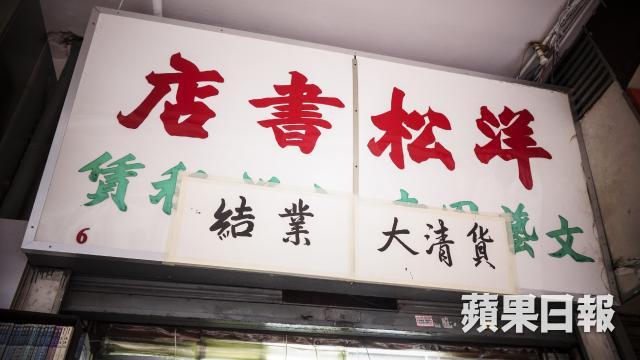 洋松書店
文藝 賃
結業 大清貨
6
蘋果日報